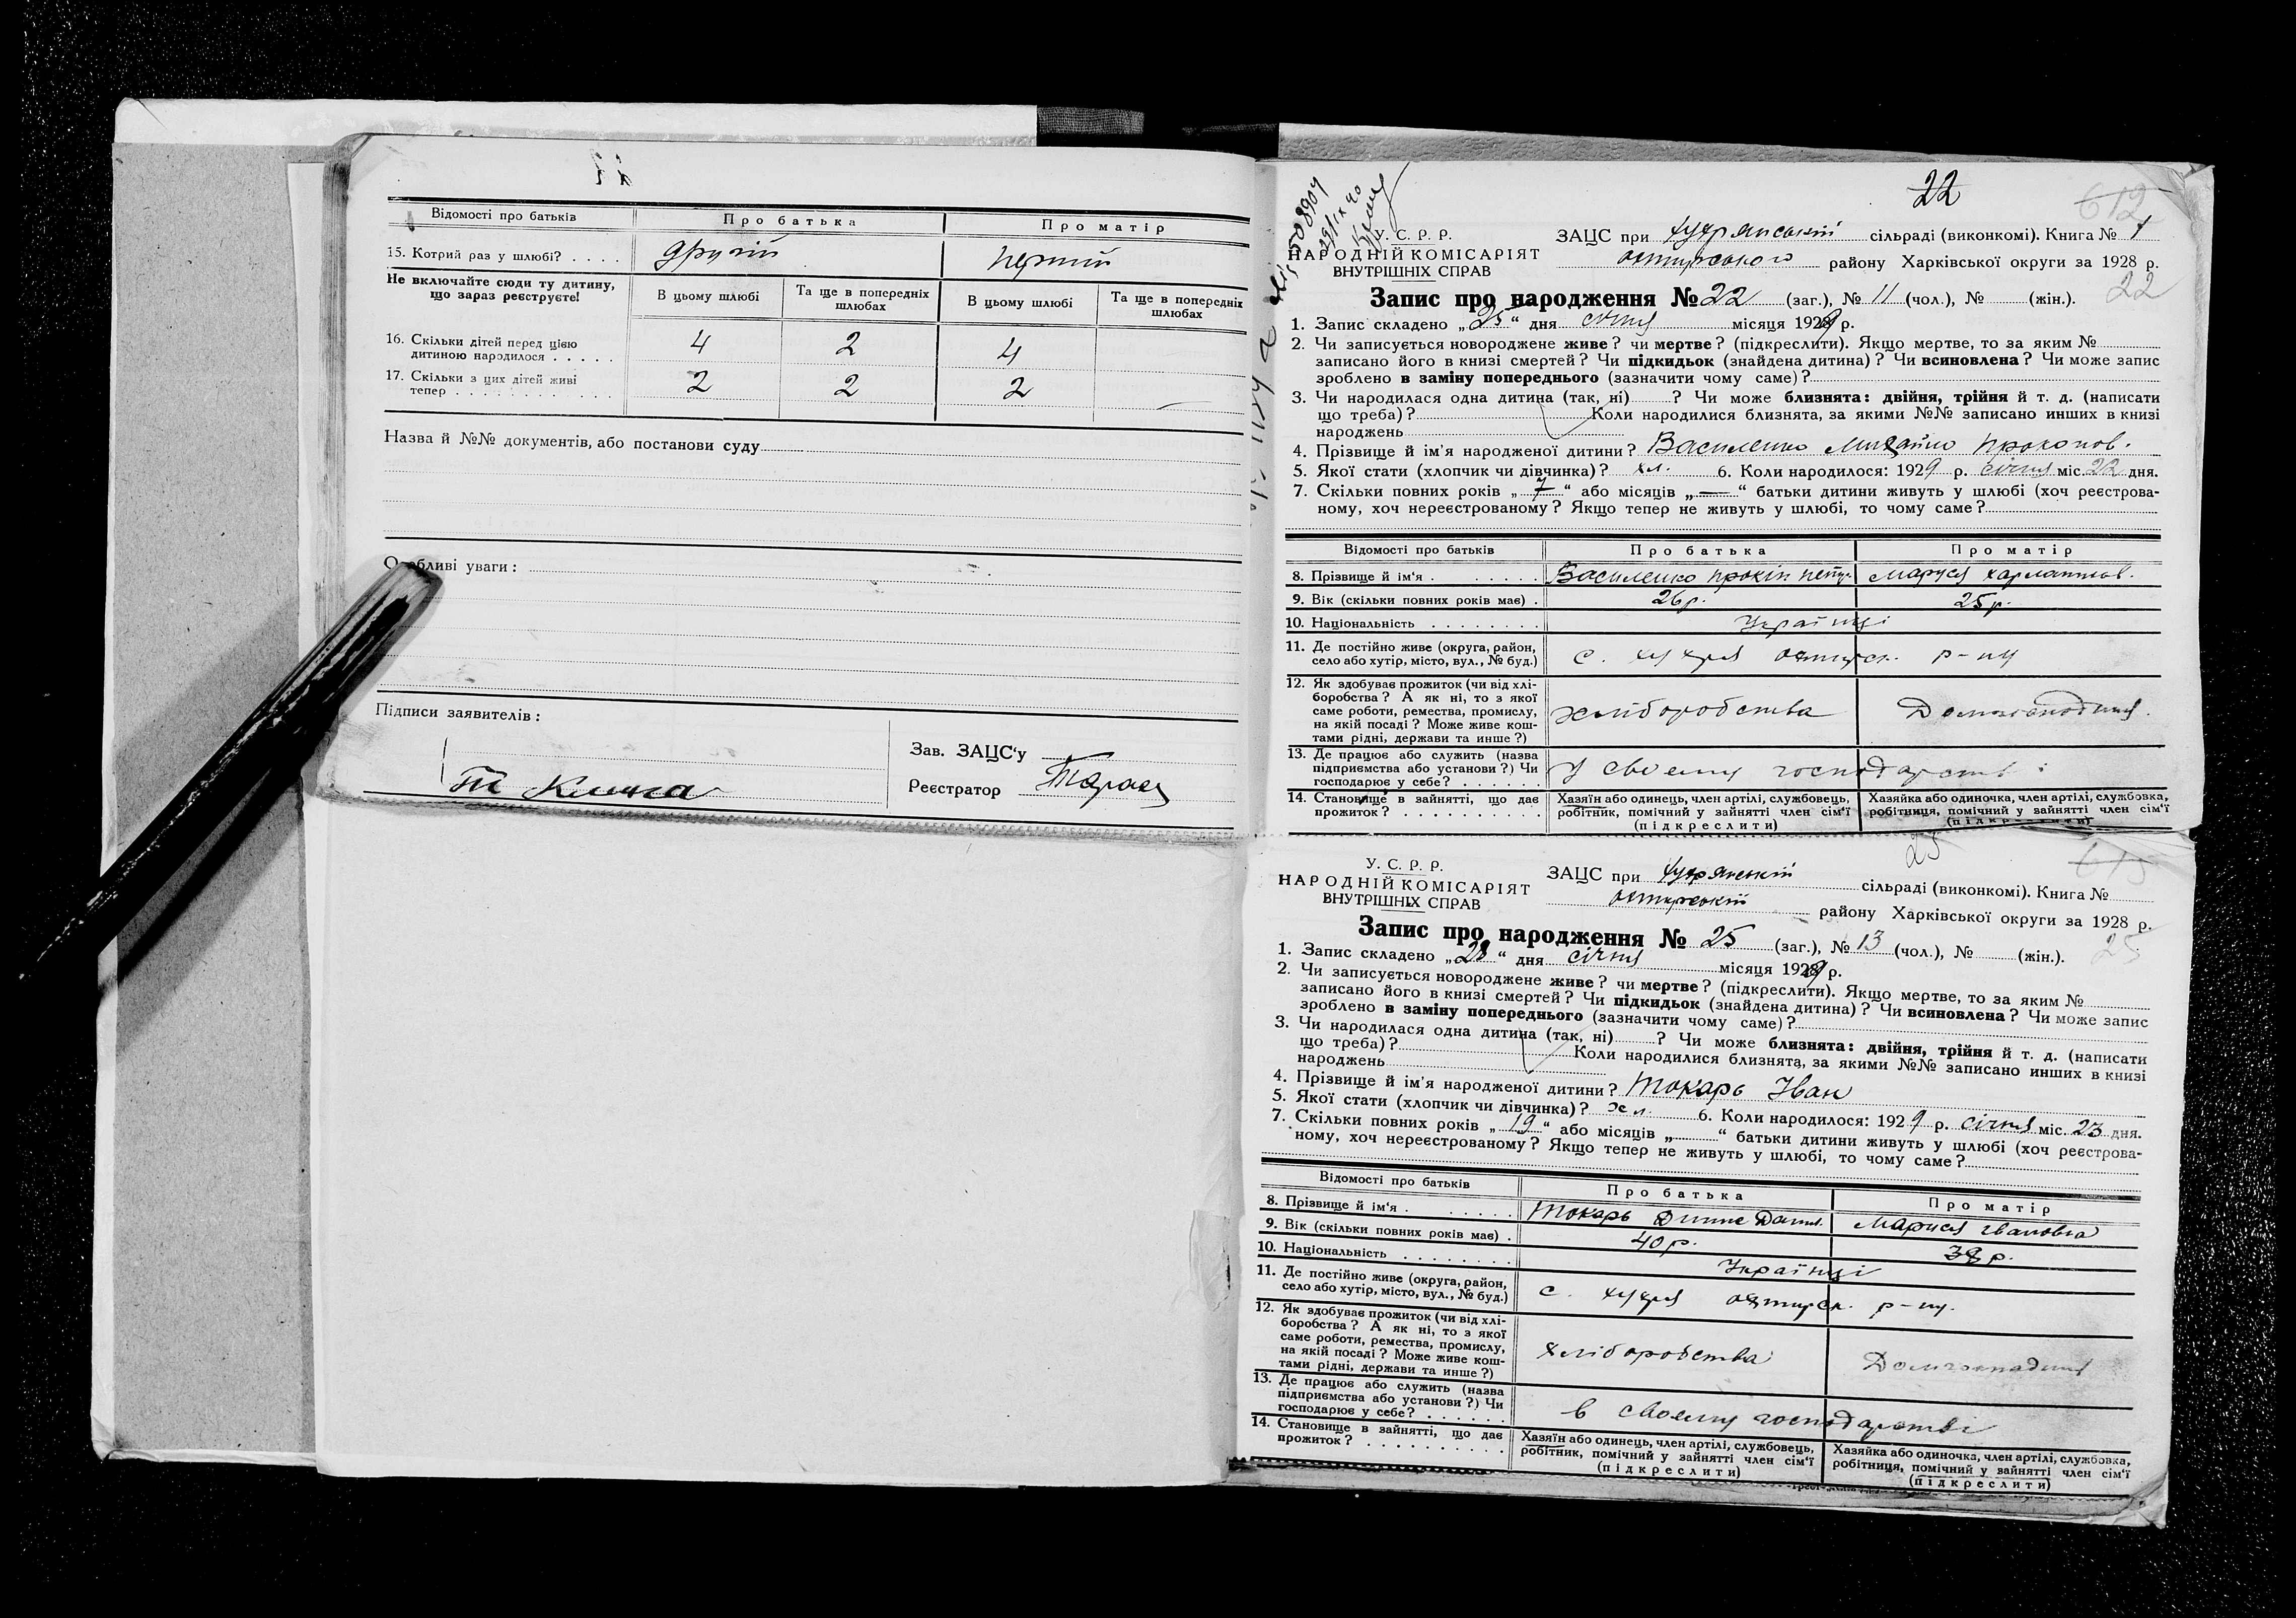 Відомості про батьків Про батька Про матір
15. Котрий раз у шлюбі? . . . . другій перший
Не включайте сюди ту дитину,
що зараз реєструєте!
В цьому шлюбі Та ще в попередніх шлюбах В цьому шлюбі Та ще в попередніх шлюбах
16. Скільки дітей перед цією
дитиною народилося . . . . . 4 2 4
17. Скільки з цих дітей живі
тепер . . . . . . . . . . . . 2 2 2 —
Назва й №№ документів, або постанови суду
Особливі уваги:
Підписи заявителів:
Зав. ЗАЦС'у
Реєстратор
22
612
У. С. Р. Р.
НАРОДНІЙ КОМІСАРІЯТ
ВНУТРІШНІХ СПРАВ
ЗАЦС при Хухрянській сільраді (виконкомі). Книга № 1
Охтирського району Харківської округи за 1928 р.
22
Запис про народження № 22 (заг.), № 11 (чол.), № (жін.).
1. Запис складено „25“ дня січня місяця 1929 р.
2. Чи записується новороджене живе? чи мертве? (підкреслити). Якщо мертве, то за яким №
записано його в книзі смертей? Чи підкидьок (знайдена дитина)? Чи всиновлена? Чи може запис
зроблено в заміну попереднього (зазначити чому саме)?
3. Чи народилася одна дитина (так, ні) ? Чи може близнята: двійня, трійня й т. д. (написати
що треба)? Коли народилися близнята, за якими №№ записано инших в книзі
народжень
4. Прізвище й ім'я народженої дитини? Василенко Михайло Прокопов.
5. Якої стати (хлопчик чи дівчинка)? хл. 6. Коли народилося: 1929 р. січня міс. 22 дня.
7. Скільки повних років „7“ або місяців „—“ батьки дитини живуть у шлюбі (хоч реєстрова-
ному, хоч нереєстрованому? Якщо тепер не живуть у шлюбі, то чому саме?
Відомості про батьків Про батька Про матір
8. Прізвище й ім'я . . . . . . Василенко Прокіп Маруся
9. Вік (скільки повних років має) . 26 р. 25 р.
10. Національність . . . . . . . . Українці
11. Де постійно живе (округа, район,
село або хутір, місто, вул., № буд.) с. Хухря Охтирск. р-ну
12. Як здобуває прожиток (чи від хлі-
боробства? А як ні, то з якої
саме роботи, ремества, промислу,
на якій посаді? Може живе кош-
тами рідні, держави та инше?) хліборобства Домогосподиня.
13. Де працює або служить (назва
підприємства або установи?) Чи
господарює у себе? . . . . . . У своему господарстві
14. Становище в зайнятті, що дає
прожиток? . . . . . . . . . .
Хазяїн або одинець, член артілі, службовець,
робітник, помічний у зайнятті член сім'ї
(підкреслити)
Хазяйка або одиночка, член артілі, службовка,
робітниця, помічний у зайнятті член сім'ї
(підкреслити)
25
615
У. С. Р. Р.
НАРОДНІЙ КОМІСАРІЯТ
ВНУТРІШНІХ СПРАВ
ЗАЦС при Хухрянській сільраді (виконкомі). Книга №
Охтирській району Харківської округи за 1928 р.
25
Запис про народження № 25 (заг.), № 13 (чол.), № (жін.).
1. Запис складено „28“ дня січня місяця 1929 р.
2. Чи записується новороджене живе? чи мертве? (підкреслити). Якщо мертве, то за яким №
записано його в книзі смертей? Чи підкидьок (знайдена дитина)? Чи всиновлена? Чи може запис
зроблено в заміну попереднього (зазначити чому саме)?
3. Чи народилася одна дитина (так, ні) ? Чи може близнята: двійня, трійня й т. д. (написати
що треба)? Коли народилися близнята, за якими №№ записано инших в книзі
народжень
4. Прізвище й ім'я народженої дитини? Токарь Іван
5. Якої стати (хлопчик чи дівчинка)? хл. 6. Коли народилося: 1929 р. січня міс. 23 дня.
7. Скільки повних років „19“ або місяців „ “ батьки дитини живуть у шлюбі (хоч реєстрова-
ному, хоч нереєстрованому? Якщо тепер не живуть у шлюбі, то чому саме?
Відомості про батьків Про батька Про матір
8. Прізвище й ім'я . . . . . . Токарь Маруся Івановна
9. Вік (скільки повних років має) . 40 р. 38 р.
10. Національність . . . . . . . Українці
11. Де постійно живе (округа, район,
село або хутір, місто, вул., № буд.) с. Хухря Охтирск. р-ну.
12. Як здобуває прожиток (чи від хлі-
боробства? А як ні, то з якої
саме роботи, ремества, промислу,
на якій посаді? Може живе кош-
тами рідні, держави та инше?) хліборобства Домогосподиня
13. Де працює або служить (назва
підприємства або установи?) Чи
господарює у себе? . . . . . . в своему господарстві
14. Становище в зайнятті, що дає
прожиток? . . . . . . . . . .
Хазяїн або одинець, член артілі, службовець,
робітник, помічний у зайнятті член сім'ї
(підкреслити)
Хазяйка або одиночка, член артілі, службовка,
робітниця, помічний у зайнятті член сім'ї
(підкреслити)